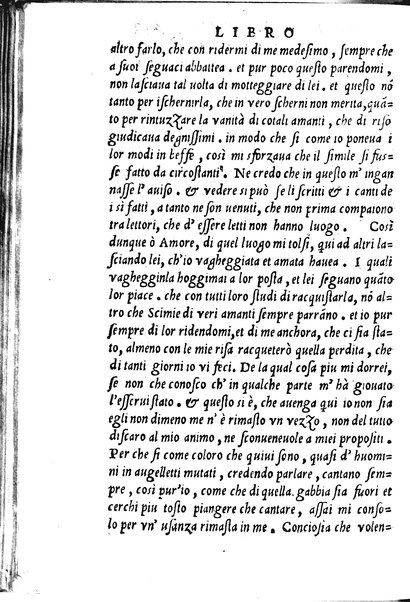 LIBRO
altro farlo, che con ridermi di me medesimo, sempre che
a suoi seguaci abbattea. et pur poco questo parendomi,
non lasciaua tal uolta di motteggiare di lei. et questo nõ
tanto per ischernirla, che in vero scherni non merita, quã
to per rintuzzare la vanità di cotali amanti, che di riso
giudicaua degnissimi. in modo che si come io poneua i
lor modi in beffe, così mi sforzaua che il simile si fus-
se fatto da circostanti. Ne credo che in questo m'ingan
nasse l'auiso. & vedere si può se li scritti & i canti de
i sì fatti, a tanto ne son uenuti, che non prima compaiono
tra lettori, che d'essere letti non hanno luogo. Così
dunque ò Amore, di quel luogo mi tolsi, qui ad altri la-
sciando lei, ch'io vagheggiata et amata hauea. I quali
vagheginla hoggimai a lor posta, et lei seguano quãto
lor piace. che con tutti loro studi di racquistarla, nõ al-
tro che Scimie di veri amanti sempre parrãno. et io pur
sempre di lor ridendomi, et di me anchora, che ci sia sta-
to, almeno con le mie risa racqueterò quella perdita, che
di tanti giorni io vi feci. De la qual cosa piu mi dorrei,
se non che conosco ch'in qualche parte m'hà giouato
l'esserui stato. & questo si è, che auenga qui io non sia
egli non dimeno me n'è rimasto vn vezzo, non del tutto
discaro al mio animo, ne sconueneuole a miei propositi.
Per che si come coloro che quiui sono, quasi d'huomi-
ni in augelletti mutati, credendo parlare, cantano sem-
pre, così pur'io, come che di quella gabbia sia fuori et
cerchi piu tosto piangere che cantare, assai mi conso-
lo per vn'usanza rimasta in me. Conciosia che volen-